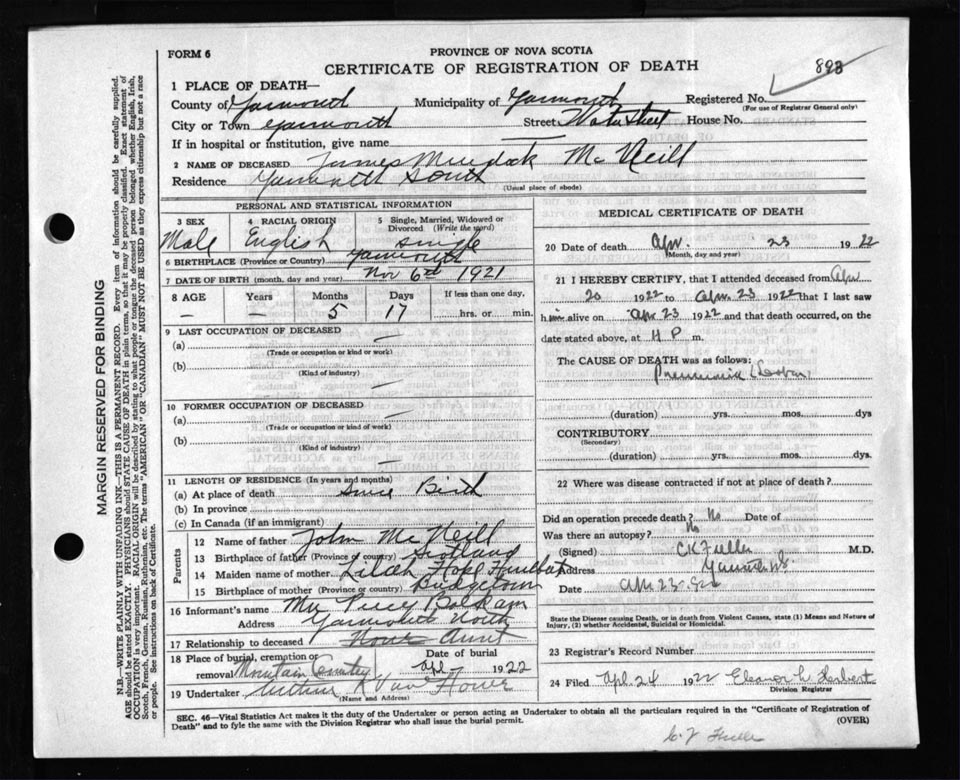 FORM 6
PROVINCE OF NOVA SCOTIA
CERTIFICATE OF REGISTRATION OF DEATH
893
1 PLACE OF DEATH—
County of Yarmouth Municipality of Yarmouth Registered No.
(For use of Registrar General only)
City or Town Yarmouth Street Water Street House No.
If in hospital or institution, give name
2 NAME OF DECEASED James Murdock McNeill
Residence Yarmouth South
(Usual place of abode)
PERSONAL AND STATISTICAL INFORMATION
3 SEX 4 RACIAL ORIGIN 5 Single, Married, Widowed or Divorced (Write the word)
Male English single
6 BIRTHPLACE (Province or Country) Yarmouth
7 DATE OF BIRTH (month, day and year) Nov 6th 1921
8 AGE Years Months Days If less than one day,
— — 5 17 hrs. or min.
9 LAST OCCUPATION OF DECEASED —
(a)
(Trade or occupation or kind or work)
(b)
(Kind of industry)
—
10 FORMER OCCUPATION OF DECEASED —
(a)
(Trade or occupation or kind of work)
(b)
(Kind of industry)
—
11 LENGTH OF RESIDENCE (In years and months)
(a) At place of death Since Birth
(b) In province
(c) In Canada (if an immigrant)
Parents
12 Name of father John McNeill
13 Birthplace of father (Province or country) Scotland
14 Maiden name of mother Hope
15 Birthplace of mother (Province or country)
16 Informant's name Percy
Address Yarmouth North
17 Relationship to deceased None Aunt
18 Place of burial, cremation or removal Mountain Cemetery Date of burial 1922
19 Undertaker
(Name and Address)
MEDICAL CERTIFICATE OF DEATH
20 Date of death Apr. 23 1922
(Month, day and year)
21 I HEREBY CERTIFY, that I attended deceased from Apr
20 1922 to Apr 23 1922 that I last saw
him alive on Apr 23 1922 and that death occurred, on the
date stated above, at P m.
The CAUSE OF DEATH was as follows:
Pneumonia (Lobar)
(duration) yrs. mos. dys
CONTRIBUTORY
(Secondary)
(duration) yrs. mos. dys.
22 Where was disease contracted if not at place of death?
Did an operation precede death? No Date of
Was there an autopsy? No
(Signed) C K Fuller M.D.
Address Yarmouth NS
Date Apr 23-22
State the Disease causing Death, or in death from Violent Causes, state (1) Means and Nature of Injury, (2) whether Accidental, Suicidal or Homicidal.
23 Registrar's Record Number
24 Filed Apl 24 1922 Eleanor W Herbert
Division Registrar
SEC. 46—Vital Statistics Act makes it the duty of the Undertaker or person acting as Undertaker to obtain all the particulars required in the "Certificate of Registration of
Death" and to fyle the same with the Division Registrar who shall issue the burial permit.
(OVER)
MARGIN RESERVED FOR BINDING
N.B.—WRITE PLAINLY WITH UNFADING INK—THIS IS A PERMANENT RECORD. Every item of information should be carefully supplied.
AGE should be stated EXACTLY. PHYSICIANS should STATE CAUSE OF DEATH in plain terms, so that it may be properly classified. Exact statement of
OCCUPATION is very important. RACIAL ORIGIN will be described by stating to what people or tongue the deceased person belonged whether English, Irish,
Scotch, French, German, Russian, Ruthenian, etc. The terms "AMERICAN" OR "CANADIAN" MUST NOT BE USED as they express citizenship but not a race
or people. See instructions on back of Certificate.